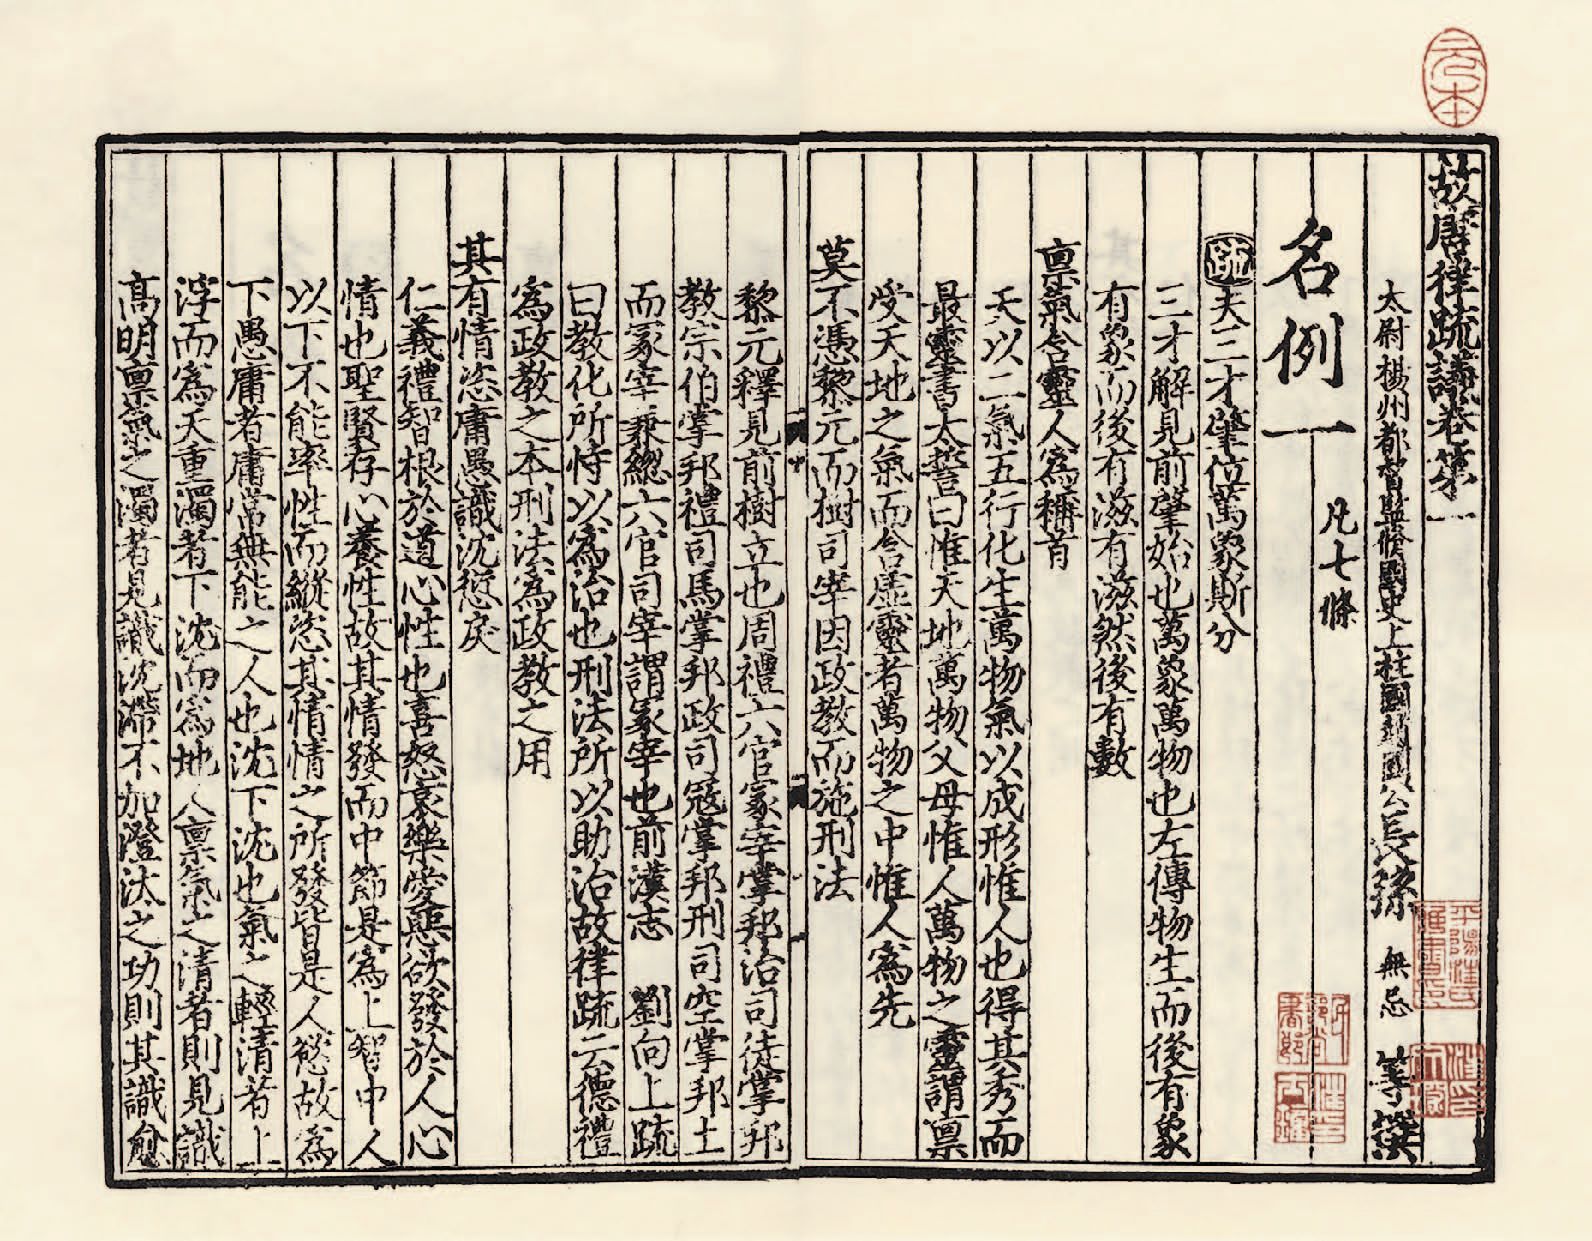 元本
故唐律疏議卷第一
太尉揚州都督監脩國史上柱國趙國公長孫無忌等撰
名例一 凡七條
疏夫三才肇位萬象斯分
三才解見前肇始也萬象萬物也左傳物生而後有象
有象而後有滋有滋然後有數
稟氣含靈人爲稱首
天以二氣五行化生萬物氣以成形惟人也得其秀而
最靈書太誓曰惟天地萬物父母惟人萬物之靈謂稟
受天地之氣而含虛靈者萬物之中惟人爲先
莫不憑黎元而樹司宰因政教而施刑法
黎元釋見前樹立也周禮六官冢宰掌邦治司徒掌邦
教宗伯掌邦禮司馬掌邦政司寇掌邦刑司空掌邦土
而冢宰兼緫六官司宰謂冢宰也前漢志 劉向上疏
曰教化所恃以爲治也刑法所以助治故律疏云德禮
爲政教之本刑法爲政教之用
其有情恣庸愚識沈愆戾
仁義禮智根於道心性也喜怒哀樂愛惡欲發於人心
情也聖賢存心養性故其情發而中節是爲上智中人
以下不能率性而縱恣其情情之所發皆是人慾故爲
下愚庸者庸常無能之人也沈下沈也氣之輕清者上
浮而爲天重濁者下沈而爲地人稟氣之清者則見識
高明稟氣之濁者見識沈滯不加澄汰之功則其識愈